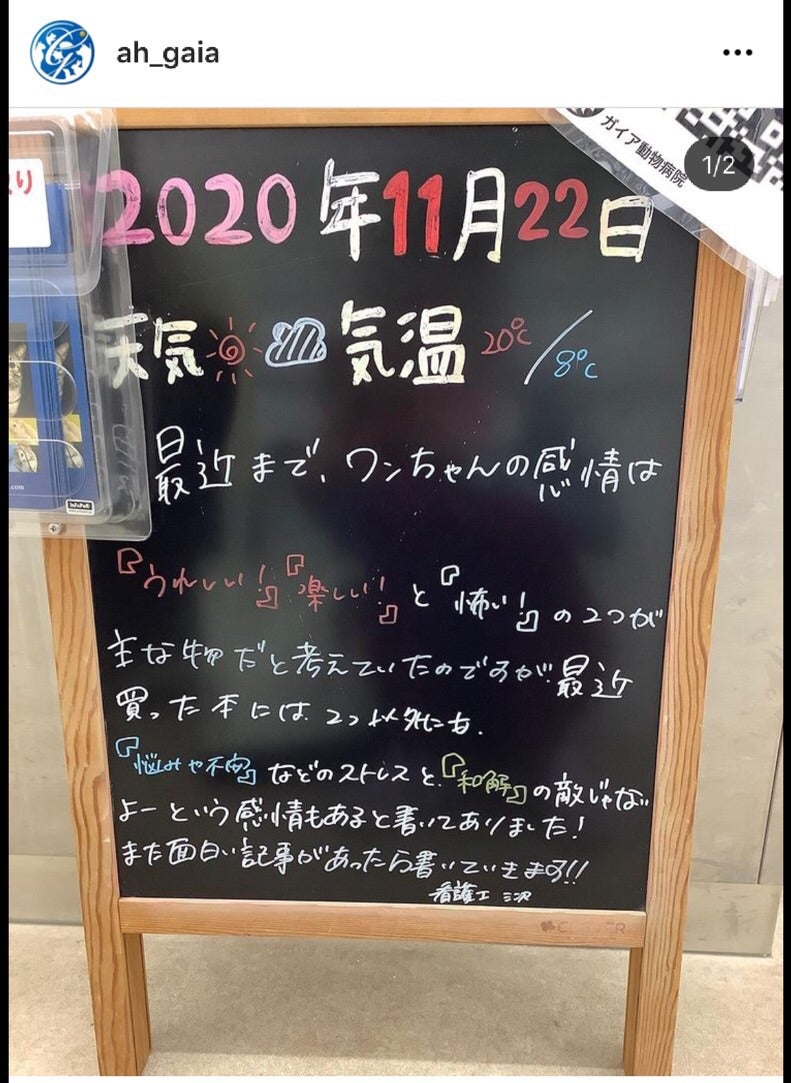 ah_gaia
ガイア動物病院
1/2
り
2020年11月22日
天気 気温 20℃/8℃
最近まで、ワンちゃんの感情は
『うれしい!』『楽しい!』と『怖い!』の2つが
主な物だと考えていたのですが最近
買った本には、2つ以外にも、
『悩みや不安』などのストレスと、『和解』の敵じゃない
よーという感情もあると書いてありました!
また面白い記事があったら書いていきます!!
看護士 三沢
.com